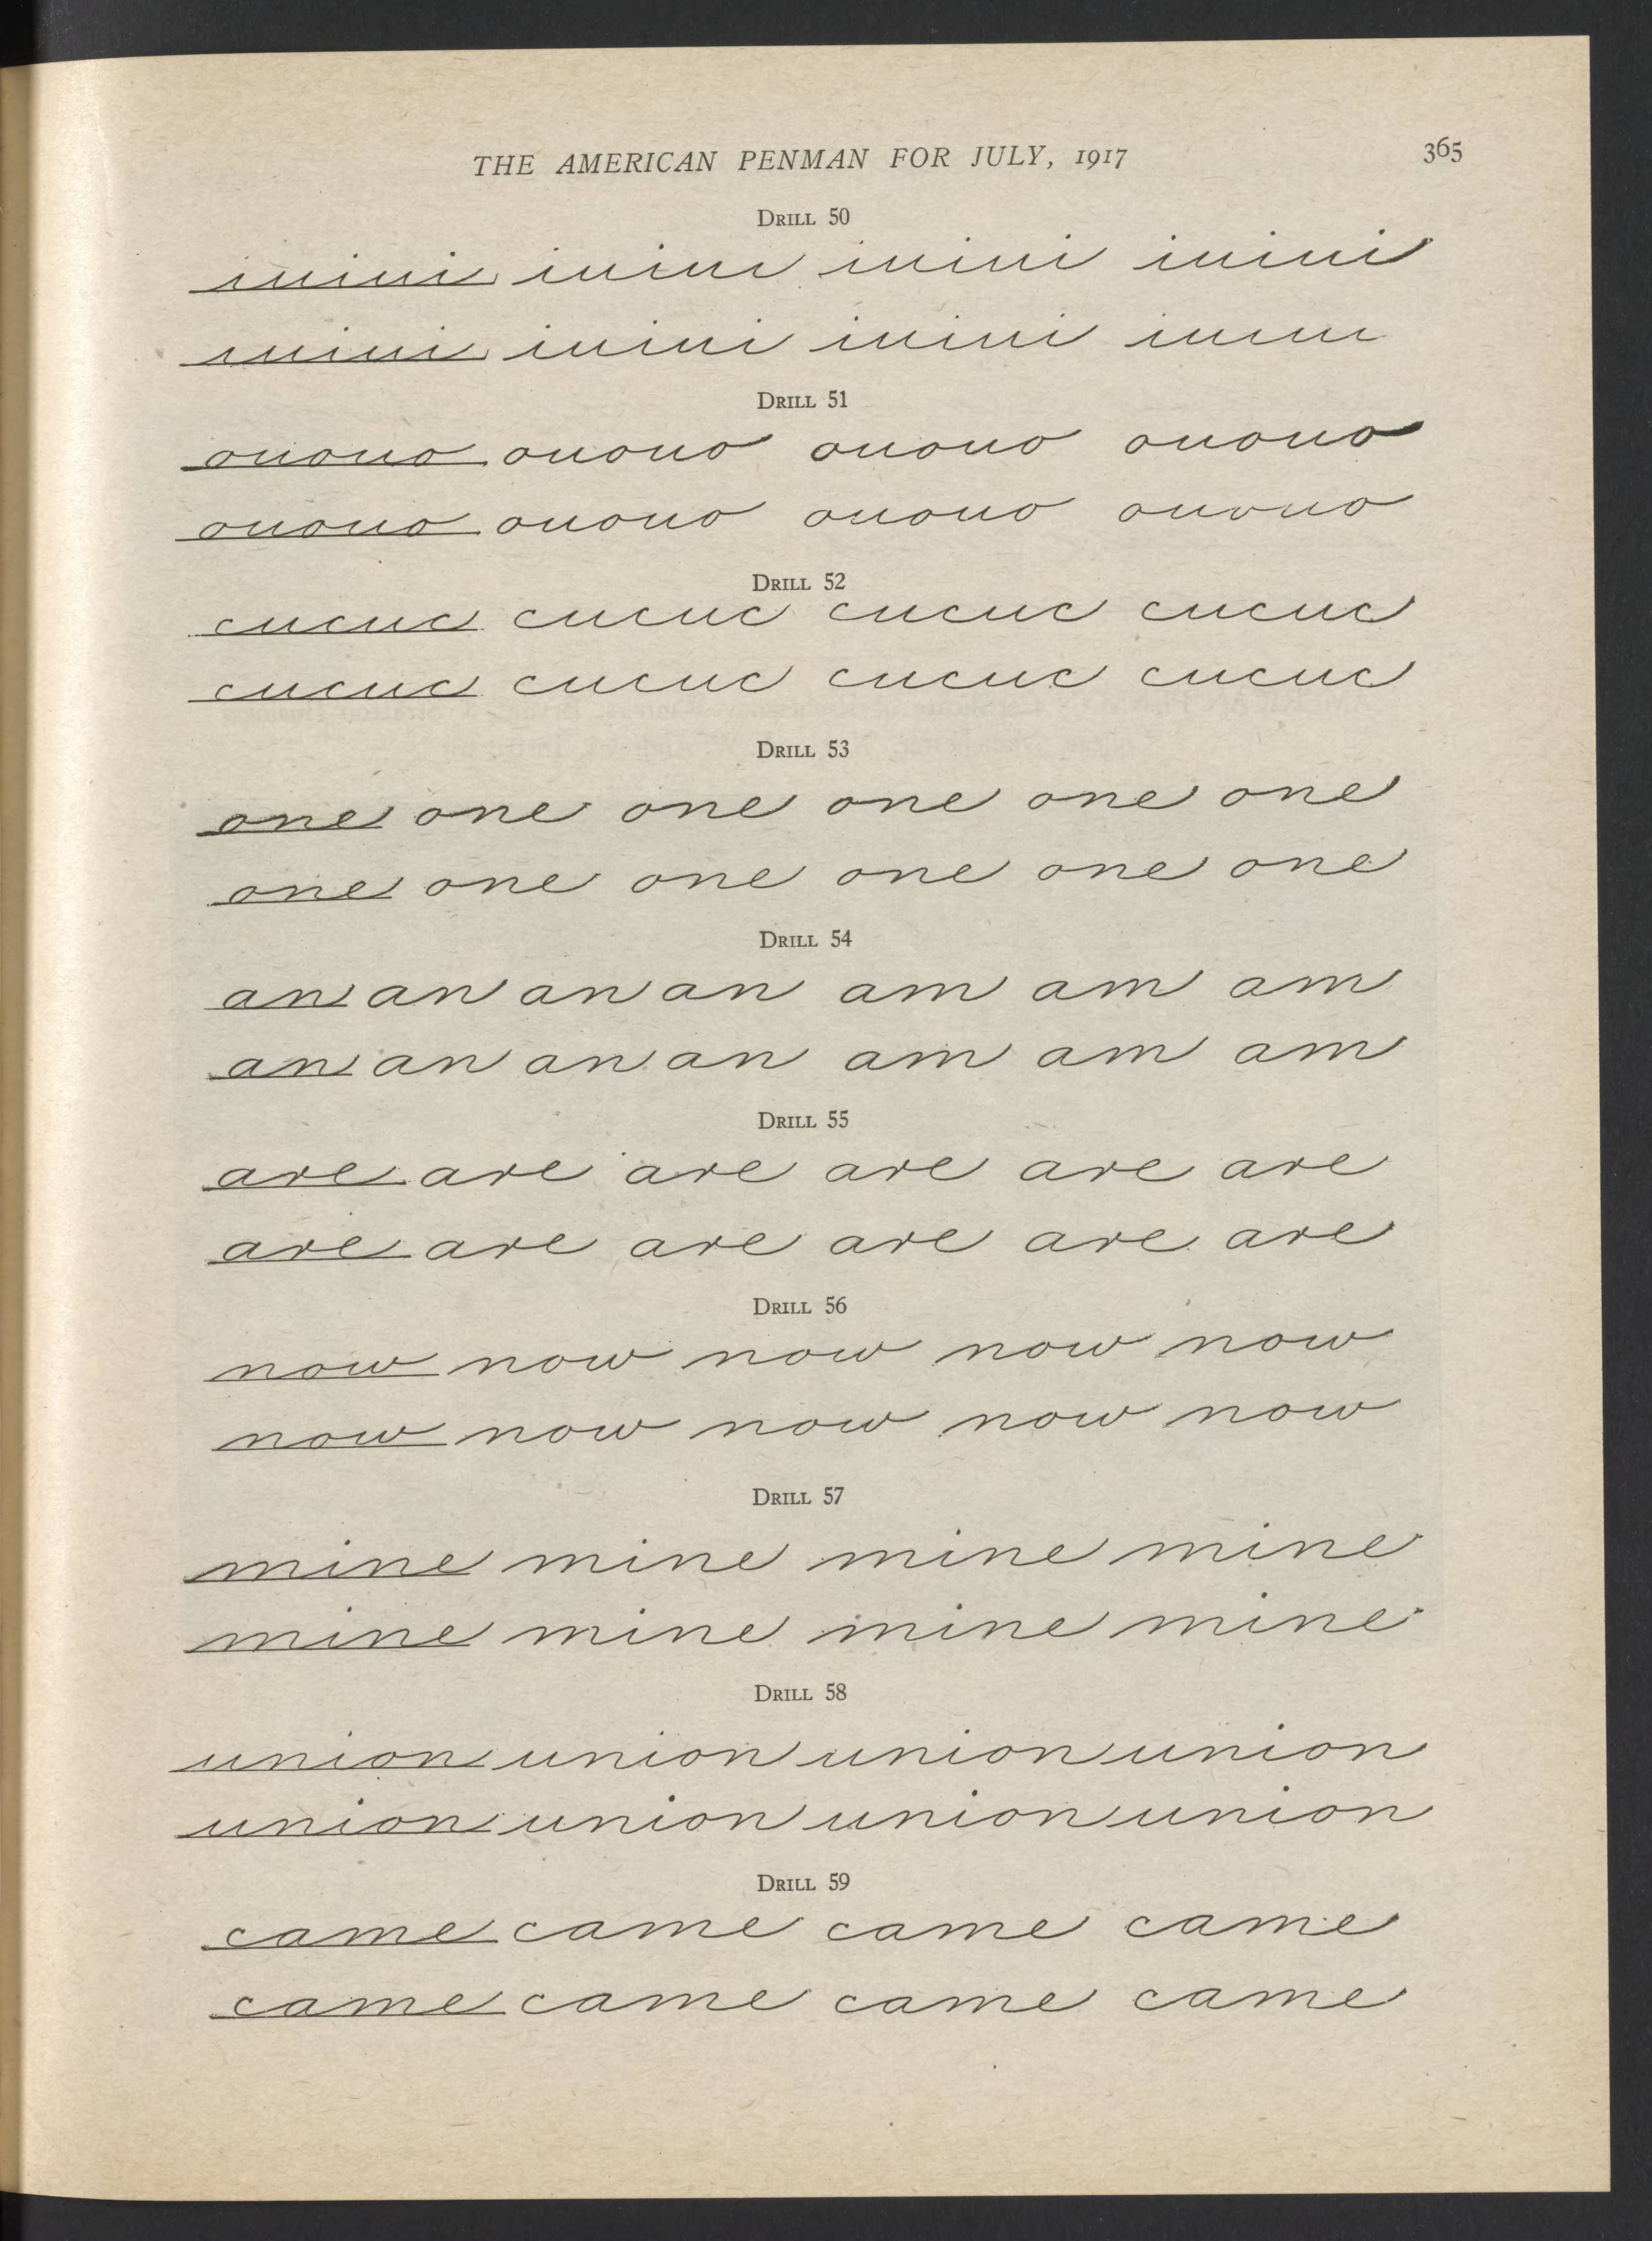 THE AMERICAN PENMAN FOR JULY, 1917 365
DRILL 50
iuiui iuiui iuiui iuiui
iuiui iuiui iuiui iuiui
DRILL 51
ououo ououo ououo ououo
ououo ououo ououo ououo
DRILL 52
cucuc cucuc cucuc cucuc
cucuc cucuc cucuc cucuc
DRILL 53
one one one one one one
one one one one one one
DRILL 54
an an an an am am am
an an an an am am am
DRILL 55
are are are are are are
are are are are are are
DRILL 56
now now now now now
now now now now now
DRILL 57
mine mine mine mine
mine mine mine mine
DRILL 58
union union union union
union union union union
DRILL 59
came came came came
came came came came